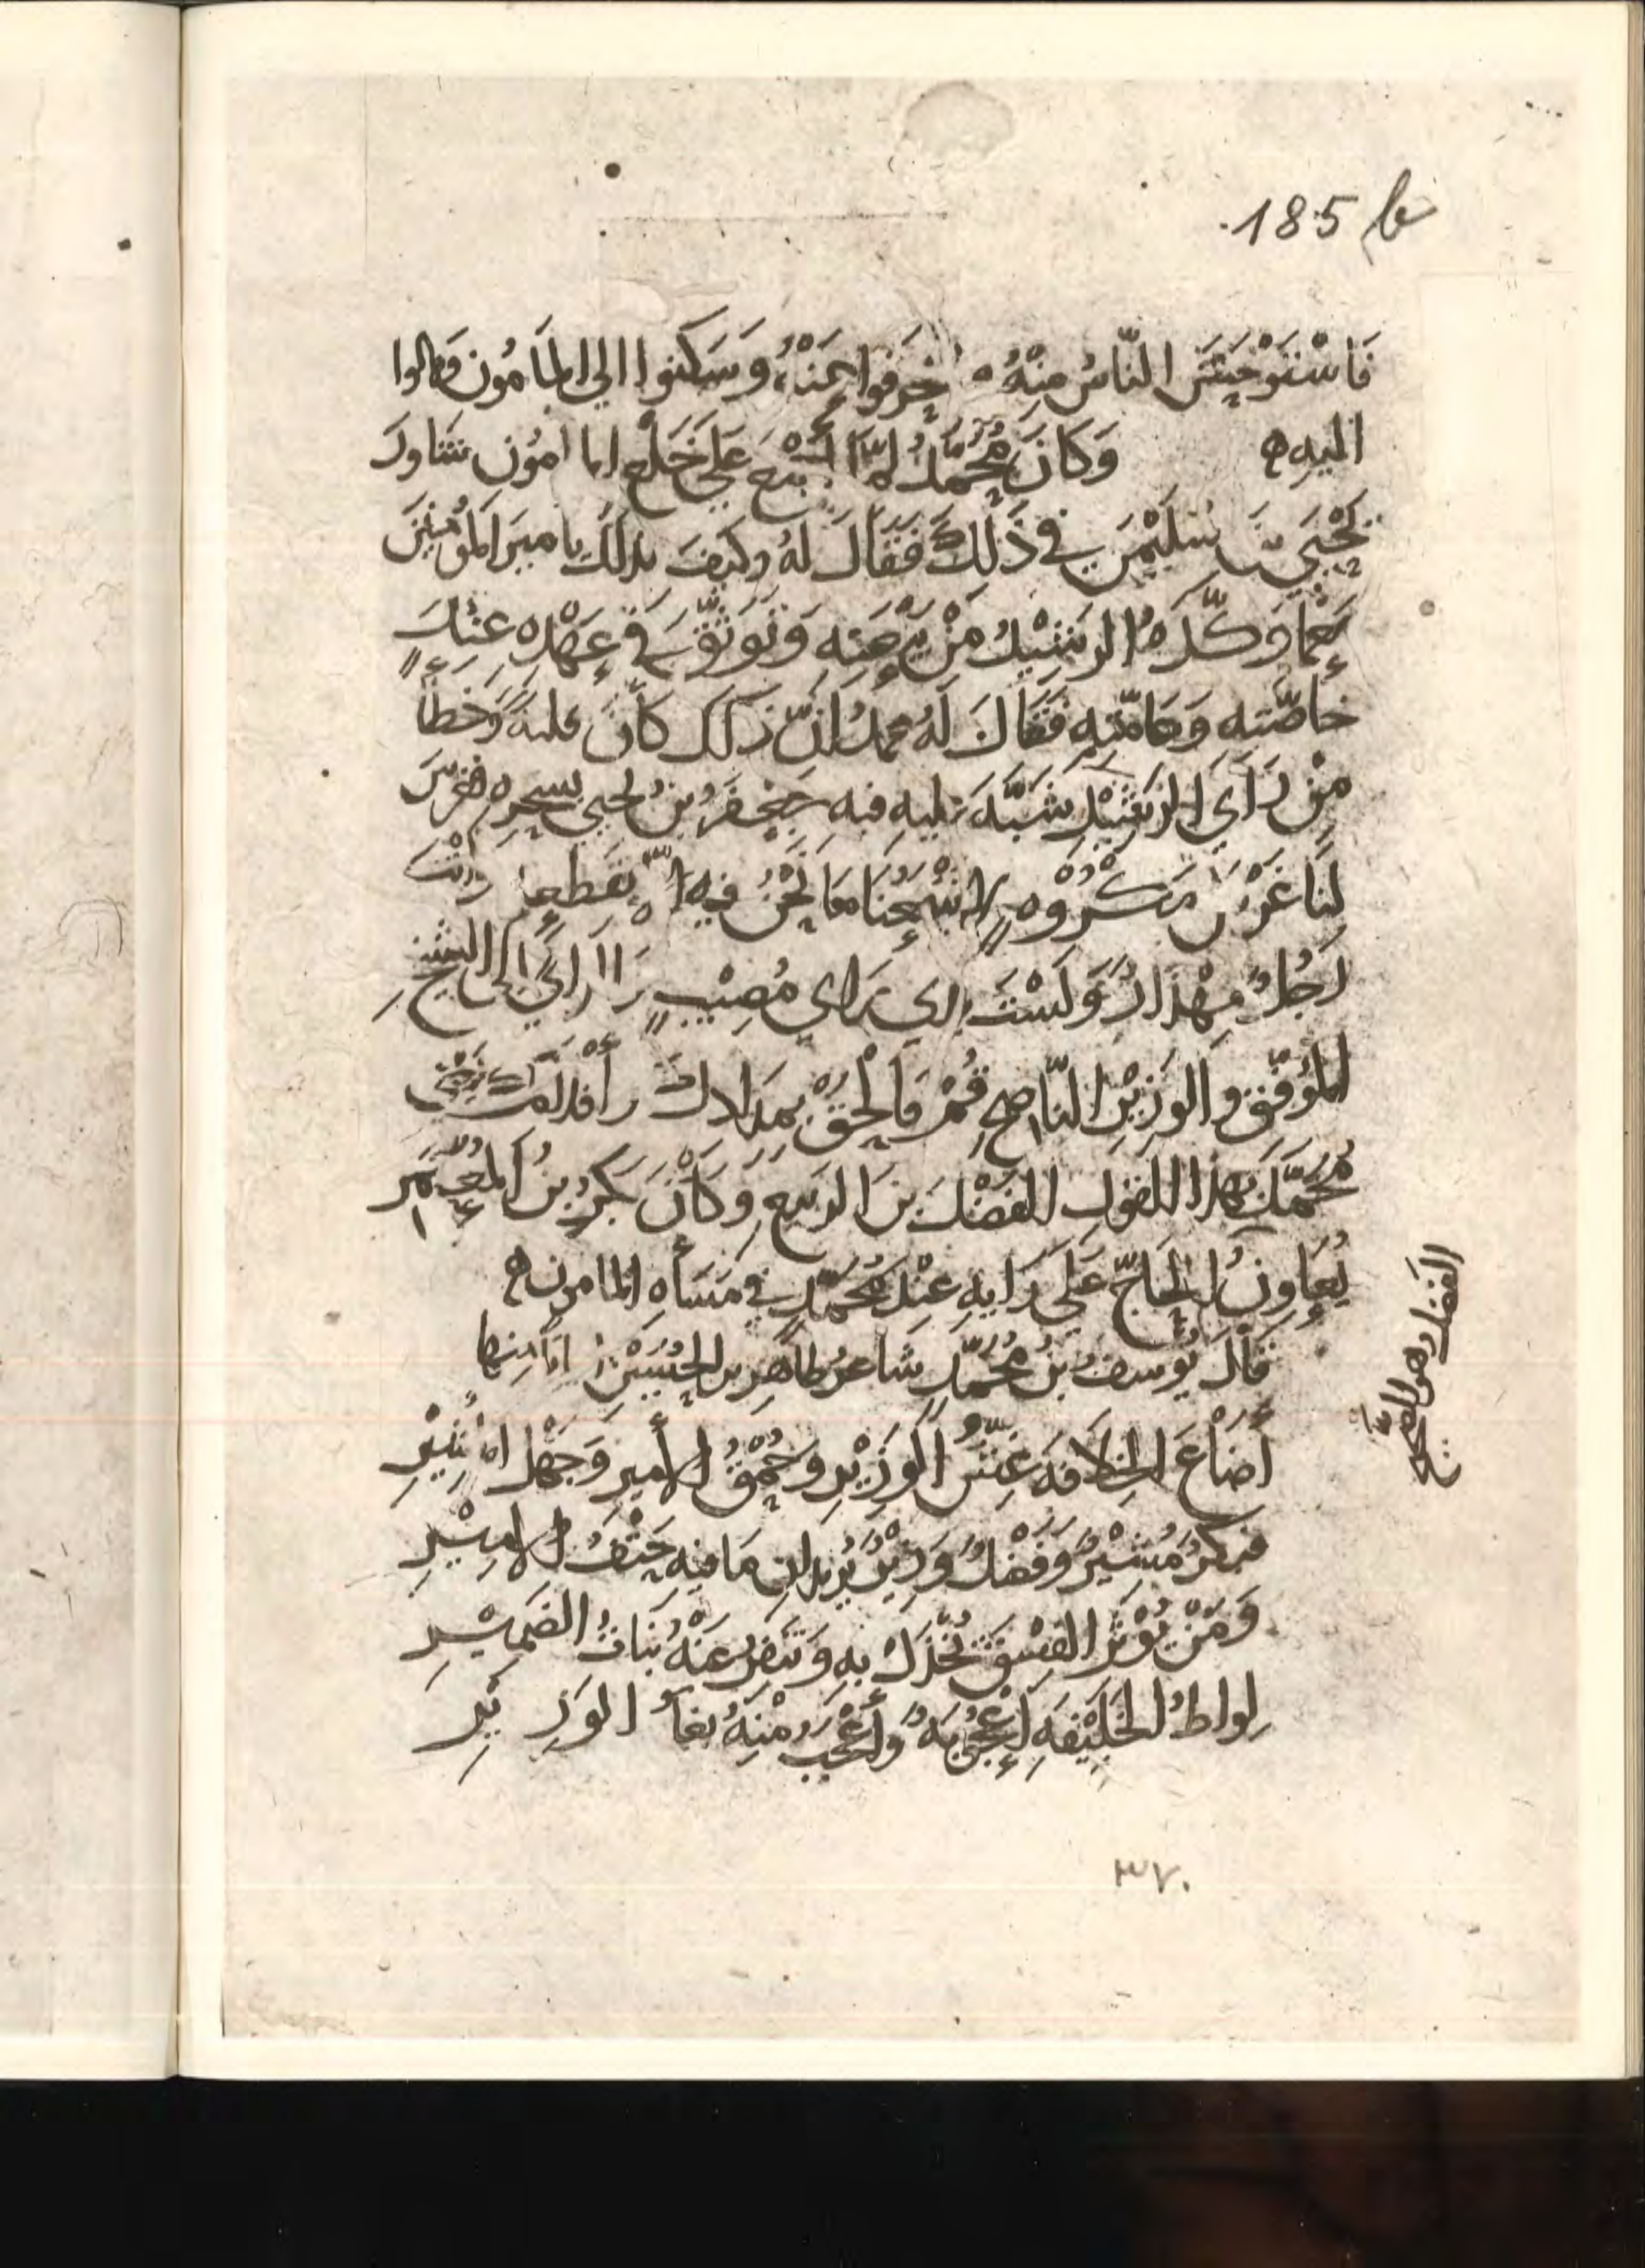 185 b
فَاسْتَوْحَشَ النّاسُ مِنْهُ وانْحَرَفوا عَنْهُ، وَسَكَنوا الي المَأمُون ومالوا
اليه ه وَكانَ مُحَمَّدُ لمّا أَزْمَعَ عَلي خَلْعِ المامُون شاورَ
يَحْيَي بنَ سُلَيْمَن في ذَلِكَ فَقَالَ لهُ وكيفَ بذلكَ يا ميرَ المُؤْمنِينَ
مَعَ مَا وَكّدَهُ الرشيْدُ مِنْ بَيْعَتِه وَتَوَثّقَ في عَهْدِه عِنْدَ
خاصّتِه وَعامّتِهِ فَقَالَ لَهُ محمدُ اِنَّ ذلك كانَ فلتةً وَخَطأً
مِنْ رَأي الرَشيْدِ شَبَّهَ عَليه فيه جَعْفَرُ بنُ يحيي بسِحرِه فغرَسَ
لنا غَرْسَ مَكْرُوْهٍ لا يَنْفَعُنَا مَا نَحْنُ فيه الّا بقَطعِه وانتَ
رَجُلٌ مِهْذارٌ وَلَسْتَ بذي رَاي مُصِيْبٍ والرَأيُ الي الشيخِ
المُوَفّقِ والوَزِيْرِ النّاصِحِ قُمْ فَالْحَقْ بِمدَادِكَ وأقْلامِكَ يَعْني
مُحَمَّدٌ بهذا القولِ الفَضْلَ بنَ الربيعِ وَكانَ بَكرُ بنُ المُعْتَمِر
يُعَاوِنُ الحَاجّ عَلي رَايِهِ عِنْدَ مُحَمَّدٍ في مَسَأَةِ المامون ه
قَالَ يُوسفُ بنُ مُحَمَّدٍ شاعرُ طاهِرِ بنِ الحُسَيْنِ ابياتا منها
أَضَاعَ الخِلافَةَ غِشُّ الوَزِيْرِ وَحُمْقُ الأميرِ وَجَهْلُ المُشِيْرِ
فبكرٌ مُشيْرٌ وَفَضْلٌ وَزِيْرٌ يُريدانِ مَا فيه حَتْفُ الامِيْرِ
وَمَنْ يُؤْثِرِ الفِسْقَ يُخْذَلْ بِهِ وَتَنفِرُ عَنْهُ بَنَاتُ الضَمِيْرِ
لواطُ الخَلِيْفَهِ اُعْجُوبَهٌ وَأَعْجَبُ مِنْهُ بغاُ الوَزِيْرِ
الفضل وهو الصَّحيح
٣٧٠